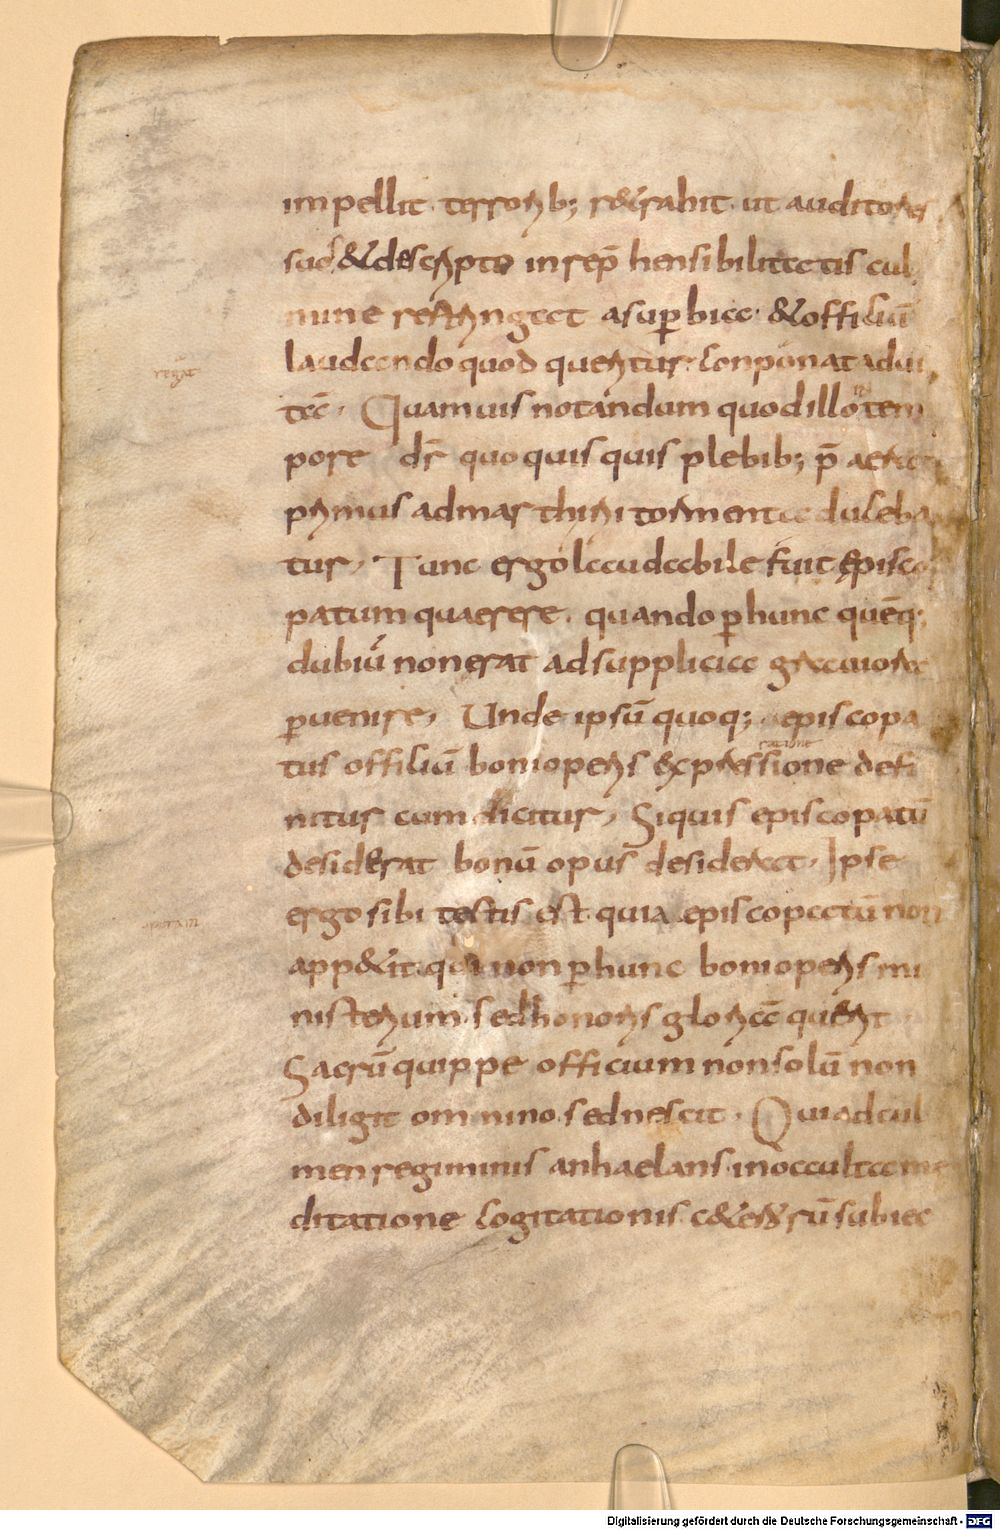 impellit terrorib; r&rahit ut auditores
suos & descripto inrep̄hensibilitatis cul
mine restringat asup̄bia· & officiū
laudando quod queritur· conponat ad ui
tā· Quamuis notandum quod illo in tem
pore dr̄ quo quisquis plebib; p̄ aerat
primus ad marthiri tormenta duceba
tur· Tunc ergo laudabile fuit episco
patum quaerere· quando p̄ hunc quēq;
dubiū non erat ad supplicia grauiora
p̄uenire· Unde ipsū quoq; episcopa
ratione
tus officiū boni operis &pressione defi
nitur cum dicitur· Siquis episcopatū
desiderat bonū opus desiderat· Ipse
ergo sibi testis est quia episcopatū non
app&it qui non p̄ hunc boni operis mi
nisterium· sed honoris gloriā querit
Sacrū quippe officium non solū non
diligit omnino· sed nescit· Qui ad cul
men regiminis anhaelans· in occulta me
ditatione cogitationis c&erorū subiec
regat
Digitalisierung gefördert durch die Deutsche Forschungsgemeinschaft - DFG